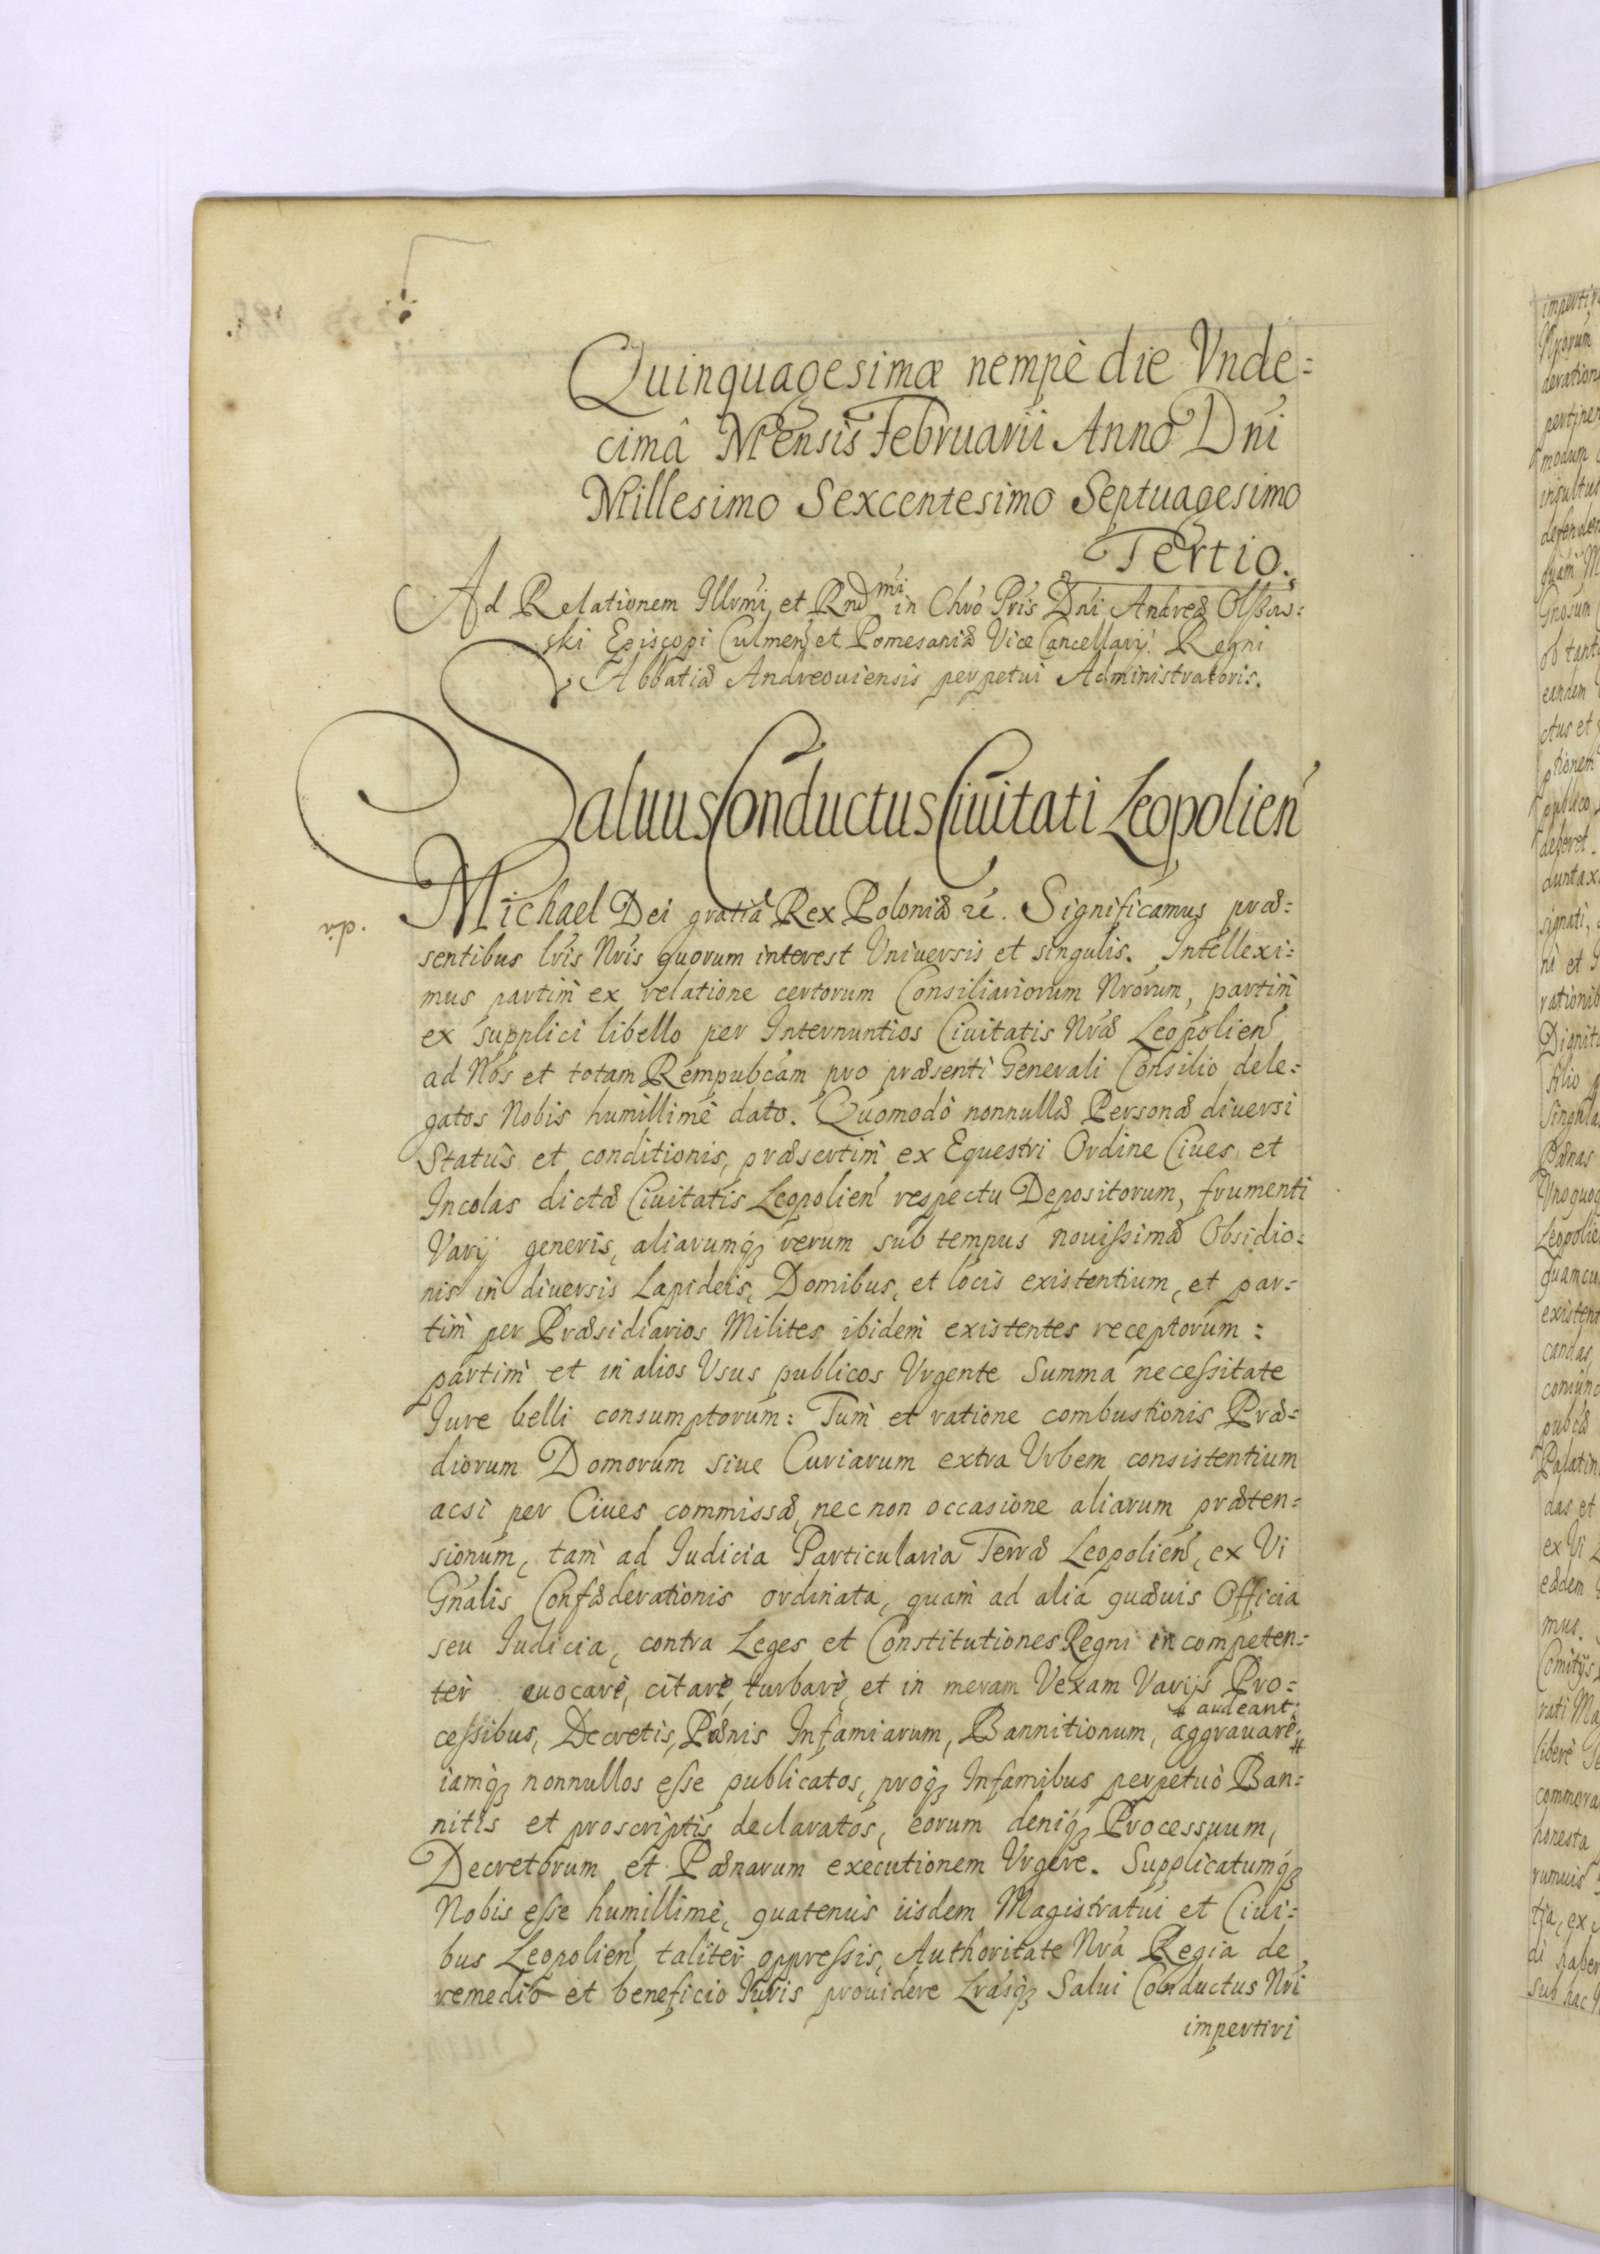 Quinquagesimæ nempè die Vnde=
cimâ Mensis Februarii Anno Dni
Millesimo Sexcentesimo Septuagesimo
Tertio.
Ad Relationem Illrmi et Rndmi in Chro Pris Dni Andreæ Olszow=
ski Episcopi Culmen et Pomesaniæ Vice Cancellarij Regni
Abbatiæ Andreouiensis perpetui Administratoris.
Saluus Conductus Ciuitati Leopolien
Michael Dei gratiâ Rex Poloniæ &c. Significamus præ=
sentibus lris Nris quorum interest Vniversis et singulis. Intellexi=
mus partim ex relatione certorum Consiliariorum Nrorum, partim
ex supplici libello per Internuntios Ciuitatis Nræ Leopolien
ad Nos et totam Rempubcam pro præsenti Generali Consilio dele=
gatos Nobis humillimè dato. Quomodò nonnullæ Personæ diuersi
Status et conditionis, præsertim ex Equestri Ordine Ciues et
Incolas dictæ Ciuitatis Leopolien respectu Depositorum, frumenti
Varij generis, aliarumq3 rerum sub tempus nouissimæ Obsidio=
nis in diuersis Lapideis, Domibus, et locis existentium, et par=
tim per Præsidiarios Milites ibidem existentes receptorum:
partim et in alios Vsus publicos Vrgente Summa necessitate
Iure belli consumptorum: Tum et ratione combustionis Præ=
diorum Domorum siue Curiarum extra Vrbem consistentium
acsi per Ciues commissæ, nec non occasione aliarum præten=
sionum, tam ad Iudicia Particularia Terræ Leopolien, ex Vi
Gnalis Confæderationis ordinata, quam ad alia quæuis Officia
seu Iudicia, contra Leges et Constitutiones Regni incompeten=
ter euocare, citare, turbare, et in meram Vexam Varijs Pro=
# audeant:
cessibus, Decretis, Pænis Infamiarum, Bannitionum, aggrauare #
iamq3 nonnullos esse publicatos, proq3 Infamibus perpetuò Ban=
nitis et proscriptis declaratos, eorum deniq3 Processuum,
Decretorum et Pænarum executionem Vrgere. Supplicatumq3
Nobis esse humillimè, quatenus iisdem Magistratui et Ciui=
bus Leopolien taliter oppressis, Authoritate Nra Regia de
remedio et beneficio Iuris prouidere Lrasq3 Salui Conductus Nri
impertiri